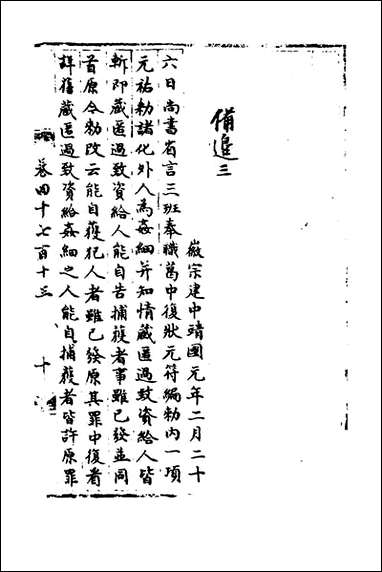 備邊三
徽宗建中靖國元年二月二十
六日尚書省言三班奉職葛中復狀元符編勅內一項
元祐勅諸化外人為姦細并知情藏匿過致資給人皆
斬即藏匿過致資給人能自告捕獲者事雖已發並同
首原今勅改云能自獲犯人者雖已發原其罪中復看
詳舊藏匿過致資給姦細之人能自捕獲者皆許原罪
卷四十七百十三
十